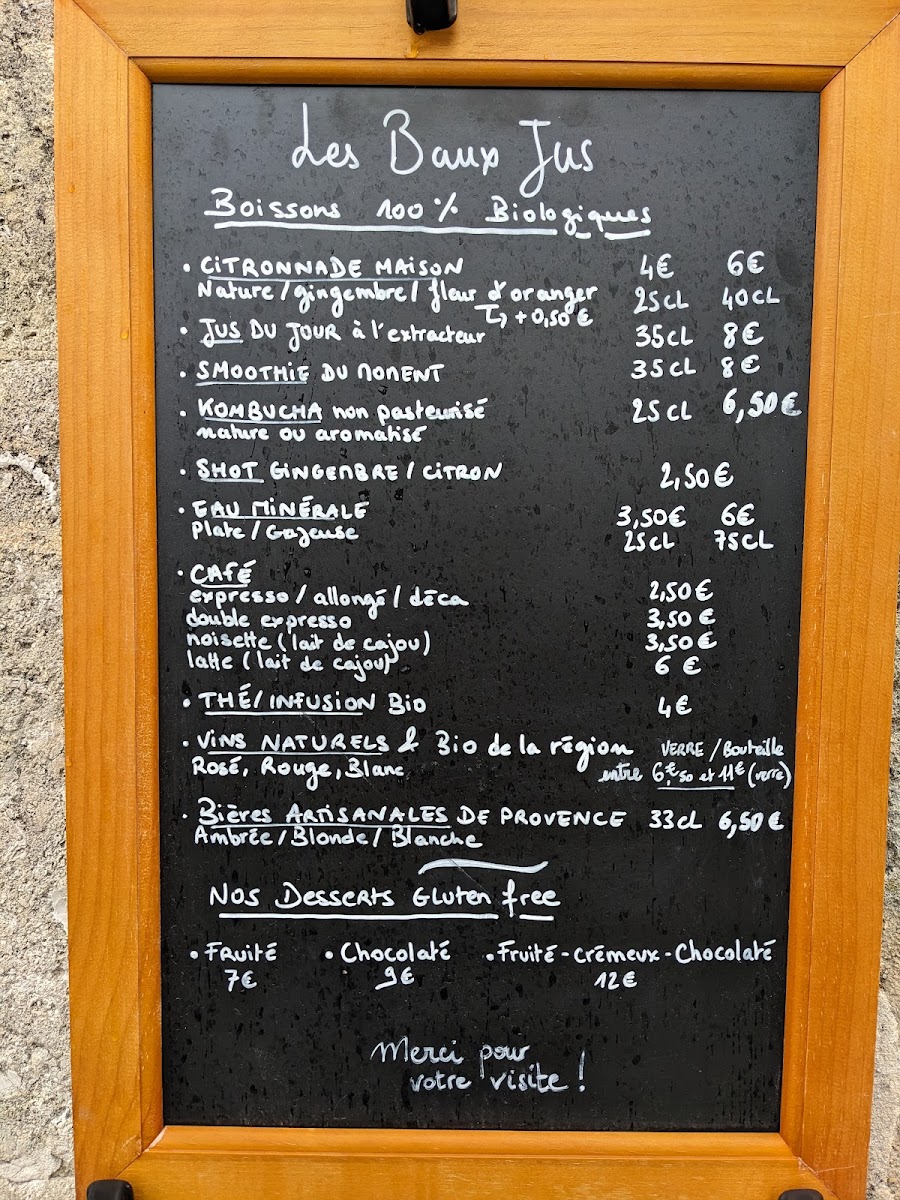 Les Baux Jus
Boissons 100% Biologiques
• CITRONNADE MAISON 4€ 6€
Nature / gingembre / fleur d'oranger 25CL 40CL
↳ +0,50€
• JUS DU JOUR à l'extracteur 35CL 8€
• SMOOTHIE DU MOMENT 35CL 8€
• KOMBUCHA non pasteurisé 25CL 6,50€
nature ou aromatisé
• SHOT GINGEMBRE / CITRON 2,50€
• EAU MINÉRALE 3,50€ 6€
Plate / Gazeuse 25CL 75CL
• CAFÉ
expresso / allongé / déca 2,50€
double expresso 3,50€
noisette (lait de cajou) 3,50€
latte (lait de cajou) 6€
• THÉ / INFUSION Bio 4€
• VINS NATURELS & Bio de la région VERRE / Bouteille
Rosé, Rouge, Blanc entre 6€50 et 11€ (verre)
• Bières ARTISANALES DE PROVENCE 33CL 6,50€
Ambrée / Blonde / Blanche
NOS DESSERTS Gluten free
• FRUITÉ • Chocolaté • Fruité - Crémeux - Chocolaté
7€ 9€ 12€
Merci pour
votre visite !